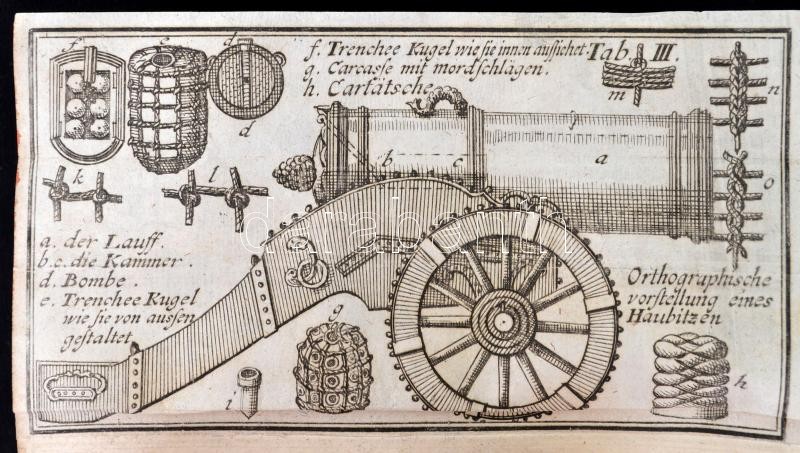 f. Trenchee Kugel wie sie innen aussiehet.
g. Carcasse mit mordschlägen.
h. Cartätsche
Tab. III.
f
e
d
d
m
n
k
l
b c a
o
a. der Lauff.
b.c. die Kammer.
d. Bombe.
e. Trenchee Kugel
wie sie von aussen
gestaltet
Orthographische
vorstellung eines
Haubitzen
g
i
h
darabanth